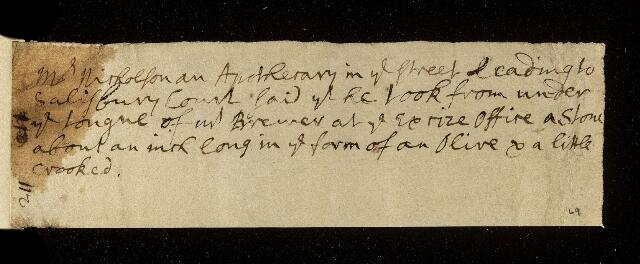 Mr Nicholson an Apothecary in ye street Leading to
Salisbury Court said yt he took from under
ye tongue of mr Brewer at ye Excize Office a Stone
about an inch long in ye form of an Olive & a little
crooked.
211
29